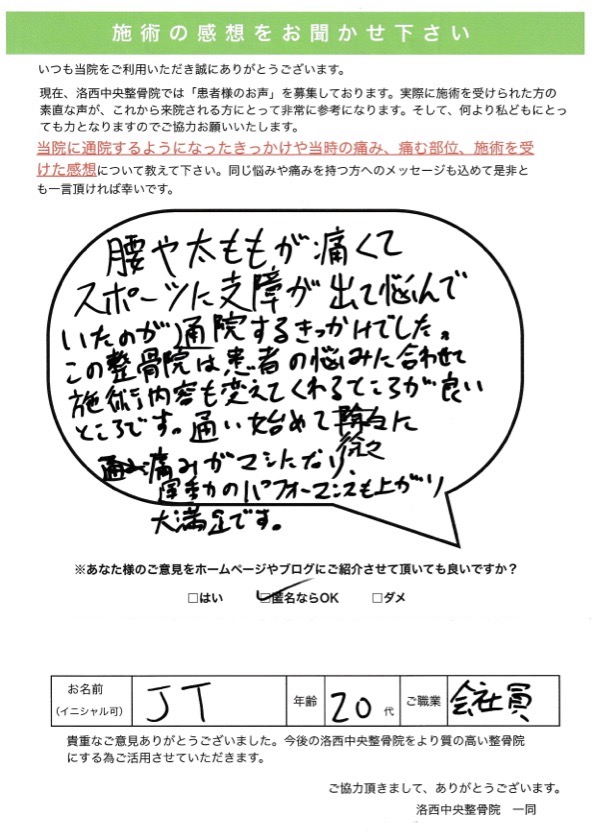 施術の感想をお聞かせ下さい
いつも当院をご利用いただき誠にありがとうございます。
現在、洛西中央整骨院では「患者様のお声」を募集しております。実際に施術を受けられた方の
素直な声が、これから来院される方にとって非常に参考になります。そして、何より私どもにとっ
ても力となりますのでご協力お願いいたします。
当院に通院するようになったきっかけや当時の痛み、痛む部位、施術を受
けた感想について教えて下さい。同じ悩みや痛みを持つ方へのメッセージも込めて是非と
も一言頂ければ幸いです。
腰や太ももが痛くて
スポーツに支障が出て悩んで
いたのが通院するきっかけでした。
この整骨院は患者の悩みに合わせて
施術内容も変えてくれるところが良い
ところです。通い始めて
徐々に
痛みがマシになり、
運動のパフォーマンスも上がり
大満足です。
※あなた様のご意見をホームページやブログにご紹介させて頂いても良いですか？
□はい ☑匿名ならOK □ダメ
お名前 (イニシャル可) JT 年齢 20代 ご職業 会社員
貴重なご意見ありがとうございました。今後の洛西中央整骨院をより質の高い整骨院
にする為ご活用させていただきます。
ご協力頂きまして、ありがとうございます。
洛西中央整骨院 一同